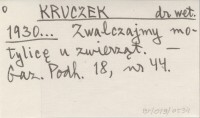 KRUCZEK dr wet.
1930... Zwalczajmy mo-
tylicę u zwierząt. —
Gaz. Podh. 18, nr 44.